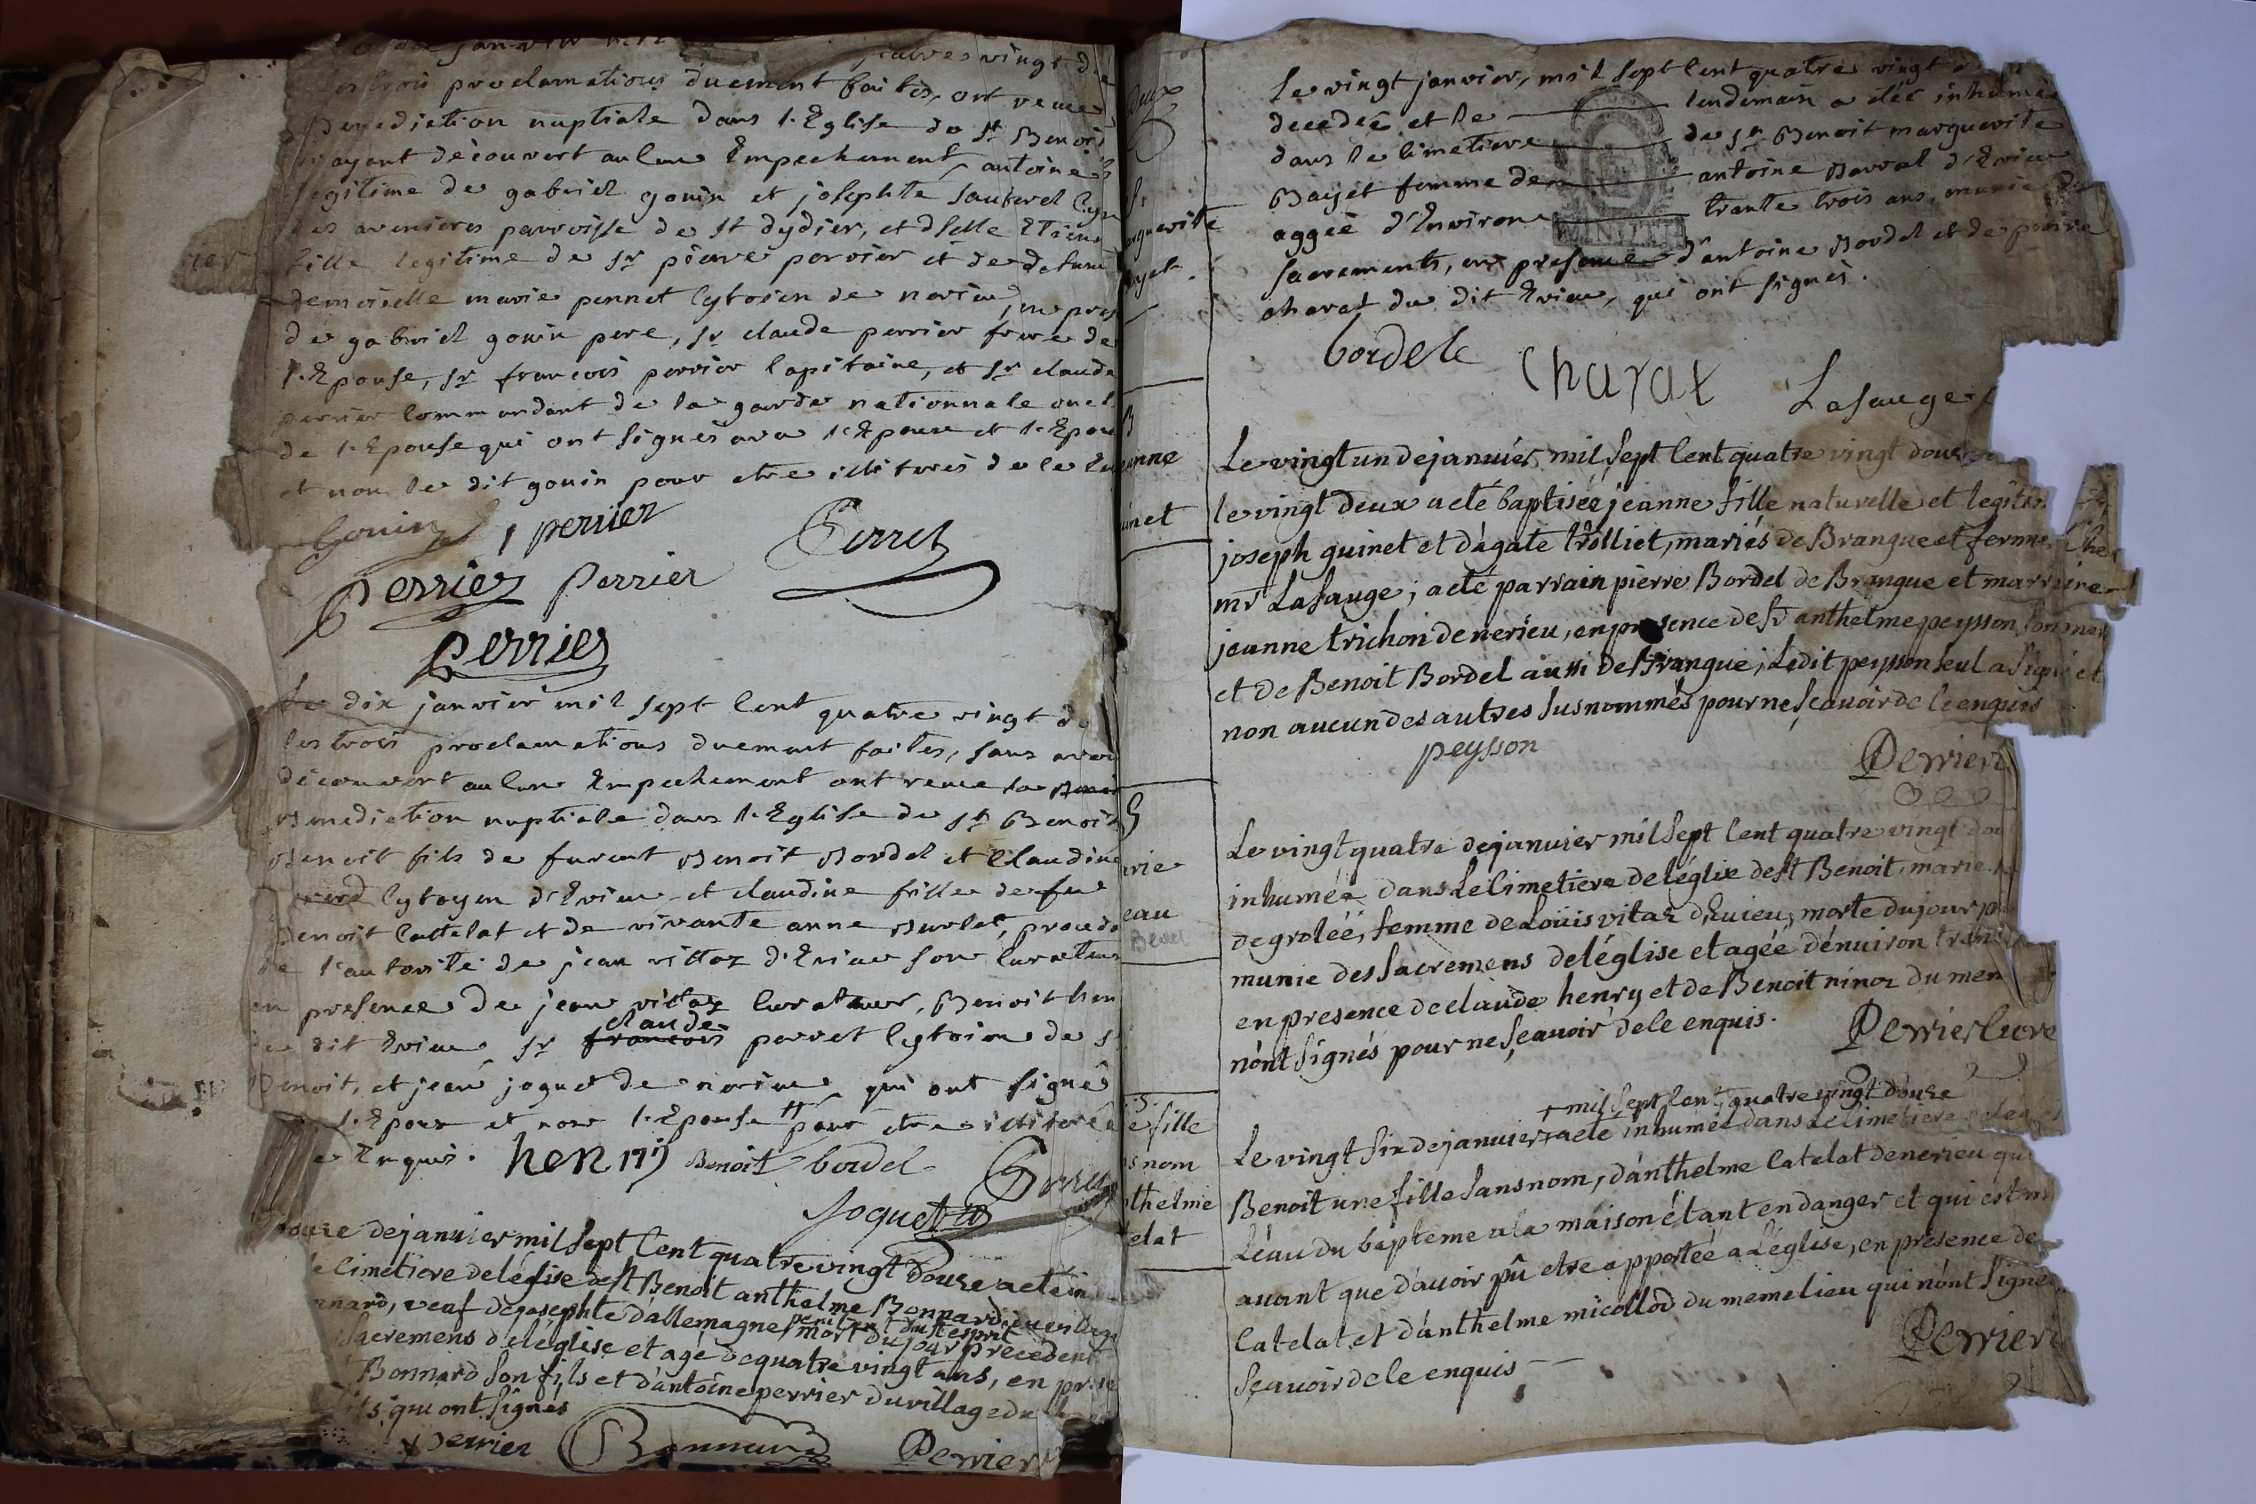 janvier mil quatre vingt
trois proclamations duement faites, ont reçue
benediction nuptiale dans l'Eglise de st Benoit
ayant découvert aulcun Empechement, antoine
legitime de gabriel gouin et josephte
des avenieres parroisse de st dydier, et dselle
fille legitime de sr piere perrier et de defun
demoiselle marie pernet Cytoien de nerieu, en pres
de gabriel gouin pere, sr claude perrier frere de
l'Epouse, sr francois perrier Capitaine, et sr claude
perrier Commandant de la garde nationnale oncl
de l'Epouse qui ont signés avec l'Epoux et l'Epou
et non le dit gouin pour etre illitturés de ce En
Gouin perrier Perret
Perrier Perrier
Perrier
Le dix janvier mil sept Cent quatre vingt do
les trois proclamations duement faites, sans avoir
découvert aulcun Empechement ont reçue la
Benediction nuptiale dans l'Eglise de st Benoit
Benoit fils de furent Benoit Bordel et Claudine
Cytoyen d'Evieu et claudine fille de feu
Benoit Cattelat et de vivante anne Burlet, procede
de l'autorité de jean vittoz d'Evieu son Curateur
en presence de jean vittoz Curateur, Benoit hen
du dit Evieu sr francois claude perret Cytoien de s
Benoit, et jean joguet de nerieu qui ont signés
l'Epoux et non l'Epouse pour etre illiturée
Enquis. henry Benoit bordel Perret
Joquet
Douze dejanvier mil sept Cent quatre vingt Douze aeté in
le Cimetiere deléglise dest Benoit anthelme Bonnard
nnard, veuf dejosephte Dallemagne penitent du st esprit
mort du jour precedent
Sacremens deleglise et agé dequatre vingt ans, en prese
Bonnard son fils et d'antoine perrier du village du
qui ont signés
perrier Bonnard Perrier
Deux
St
arguerite
Bayet
Le vingt janvier, mil sept Cent quatre vingt
decedeé et le lendemain a étéé inhumée
dans le Cimetiere de st Benoit marguerite
Bayet femme de antoine Barral d'Evieu
aggeé d'Environ trante trois ans, munie de
sacrements, en presence d'antoine Bordel et de pierre
charat du dit Evieu, qui ont signés.
bordele Charat Lasauge
B
eanne
inet
Le vingt un dejanvier mil sept Cent quatre vingt douze
le vingt deux aeté baptisée jeanne fille naturelle et legitim
joseph guinet et d'agate trolliet, mariés de Brangue et fermier Chez
mr Lasauge; aeté parrain pierre Bordel de Brangue et marreine
jeanne trichon denerieu, en presence de sr anthelme peysson
et de Benoit Bordel aussi de Brangue; Ledit peysson seul a signé et
non aucun des autres susnommés pour ne sçavoir de le enquis
peysson Perrier
S
rie
eau
Le vingt quatre dejanvier mil sept Cent quatre vingt dou
inhumée dans Le Cimetiere deléglise dest Benoit, marie
de grolée, femme de Loüis vitoz d'Evieu, morte du jour p
munie des sacremens deléglise et agée dénviron tren
en presence de claude henry et de Benoit ninoz du mem
n'ont signés pour ne sçavoir de le enquis. Perrier Cure
S.
e fille
s nom
thelme
elat
+ mil sept Cent quatre vingt Douze
Le vingt six dejanvier + aeté inhumée dans Le Cimetiere deleglise
Benoit une fille sans nom, d'anthelme Catelat denerieu qui
Léau du bapteme a la maison étant en danger et qui est m
avant que d'avoir pû etre apportée a Léglise, en présence de
Catelat et d'anthelme micollod du meme lieu qui n'ont signé
Sçavoir de le enquis Perrier